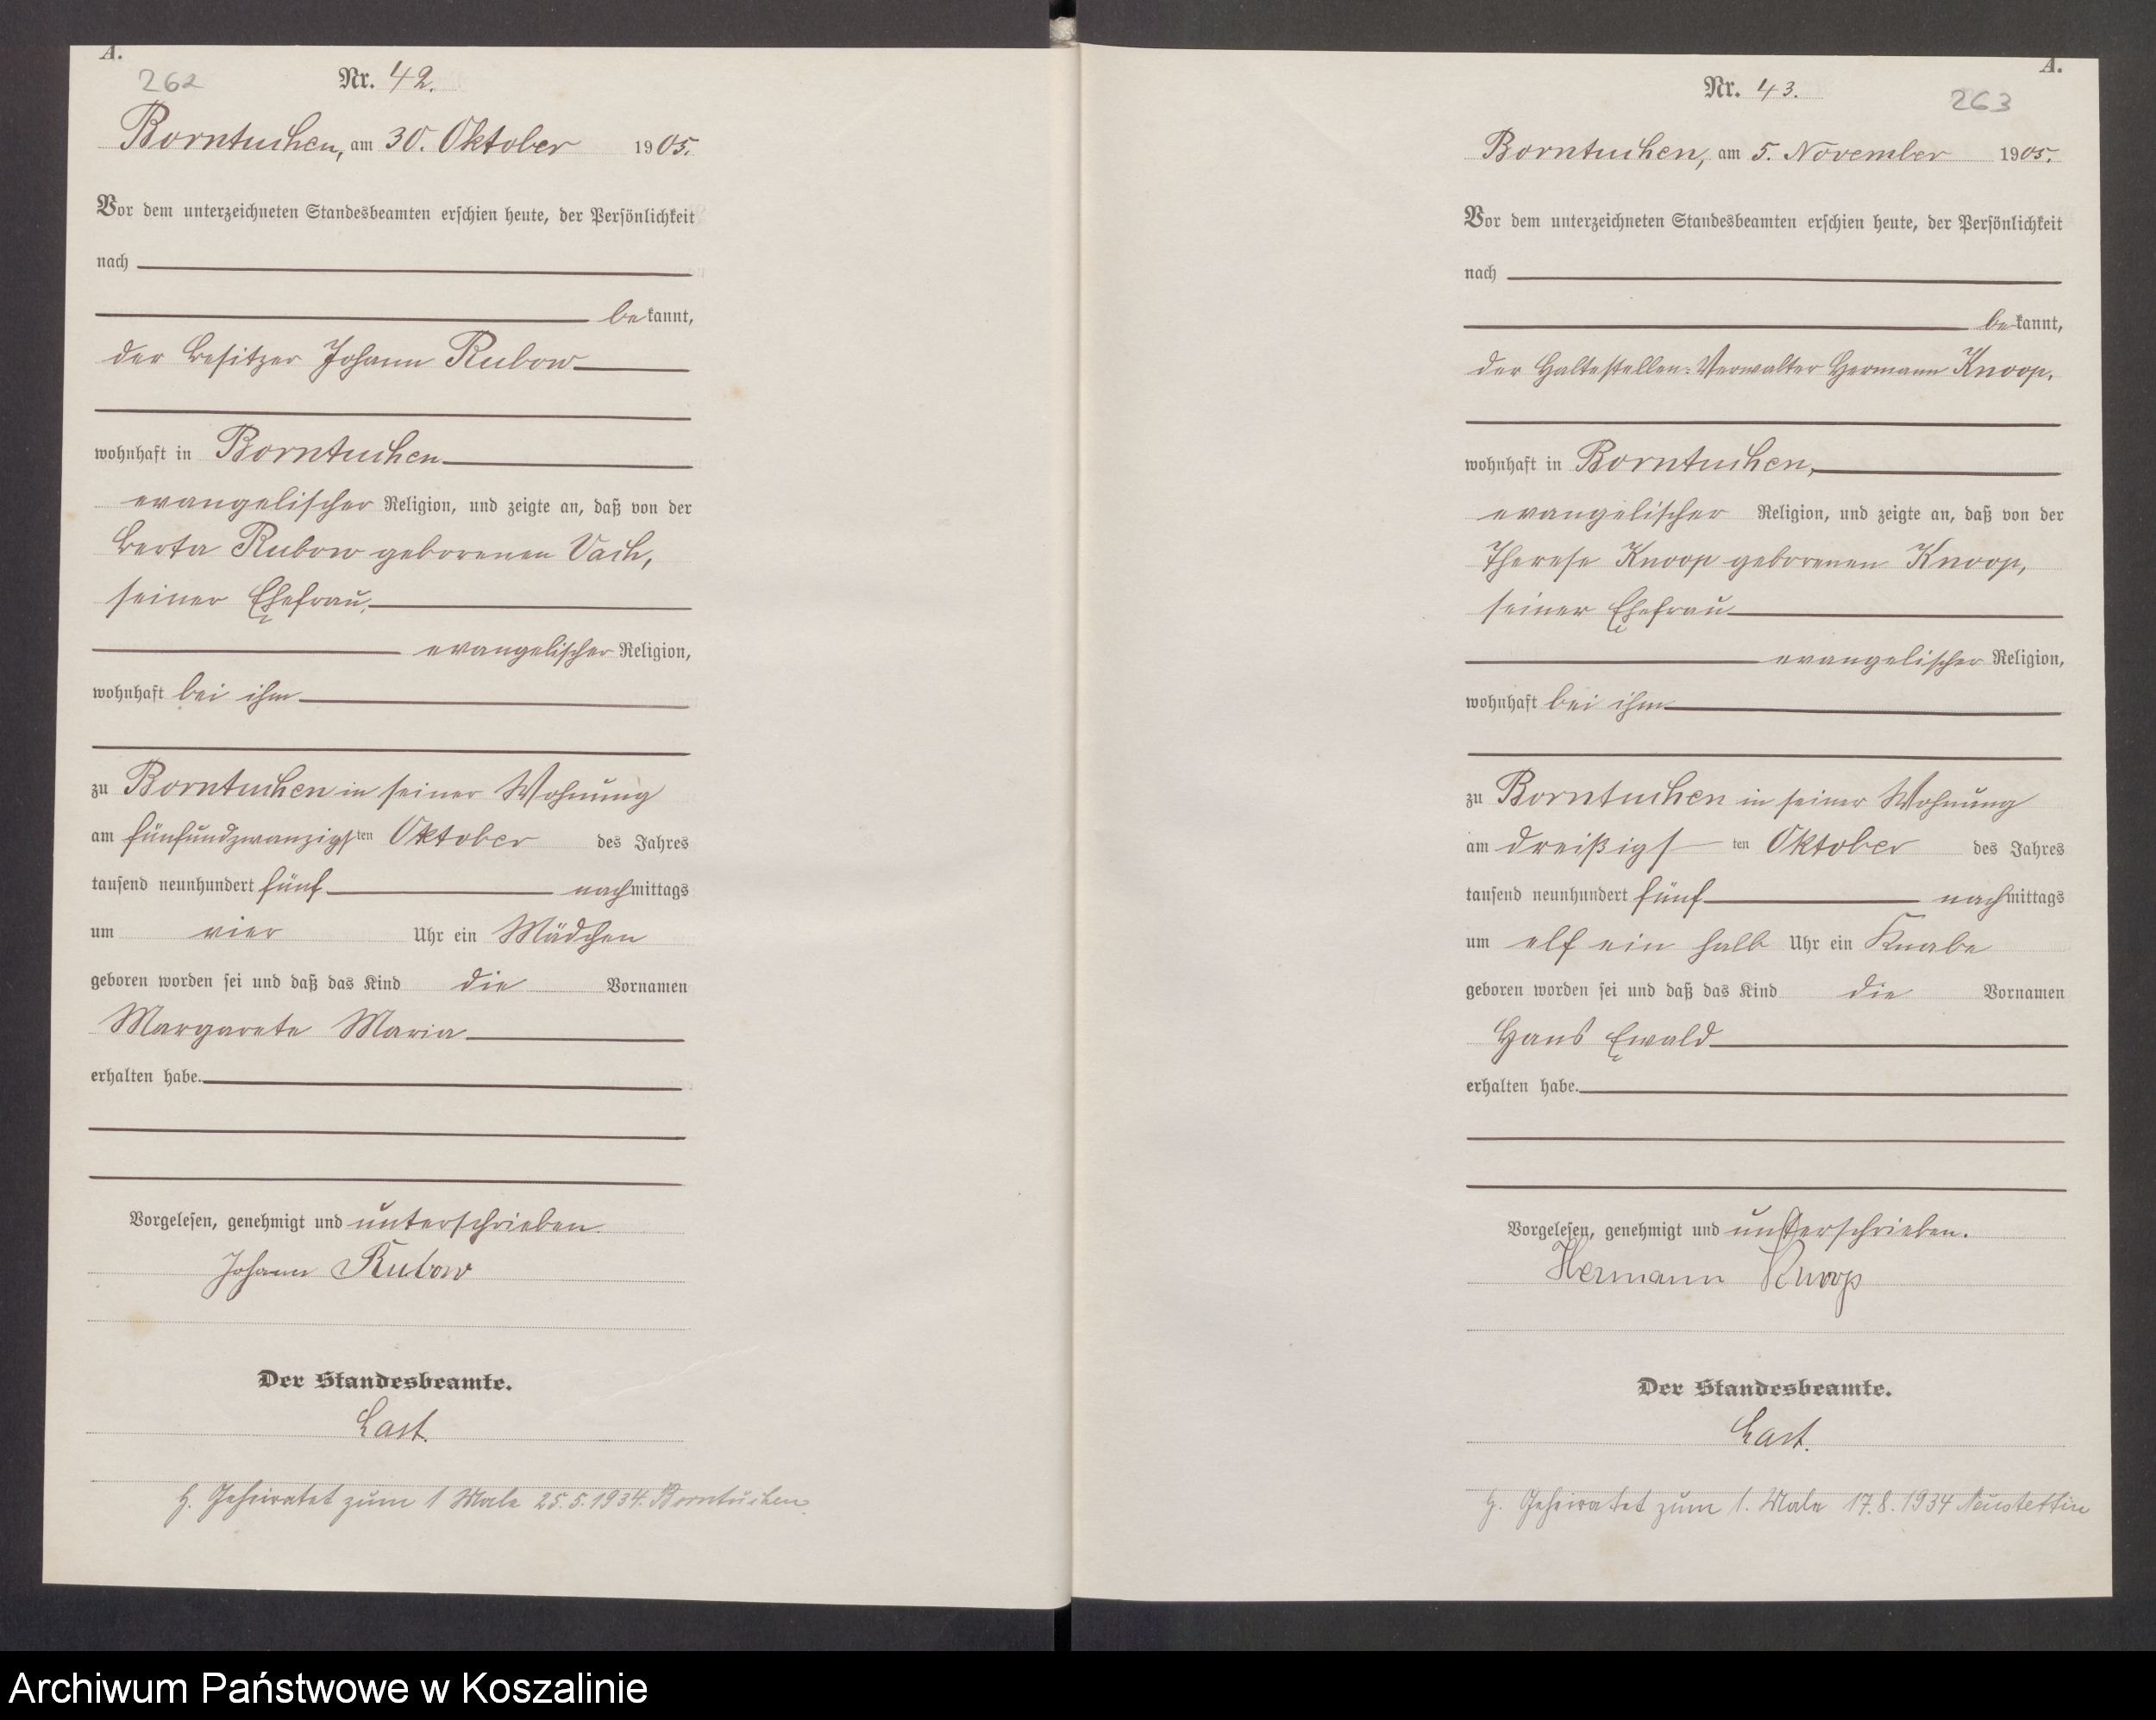 A.
262
Nr. 42.
Borntuchen, am 30. Oktober 1905.
Vor dem unterzeichneten Standesbeamten erschien heute, der Persönlichkeit
nach
bekannt,
der Besitzer Johann Rubow
wohnhaft in Borntuchen
evangelischer Religion, und zeigte an, daß von der
Berta Rubow geborenen Vach,
seiner Ehefrau,
evangelischer Religion,
wohnhaft bei ihm
zu Borntuchen in seiner Wohnung
am fünfundzwanzigsten Oktober des Jahres
tausend neunhundert fünf nachmittags
um vier Uhr ein Mädchen
geboren worden sei und daß das Kind die Vornamen
Margarete Maria
erhalten habe.
Vorgelesen, genehmigt und unterschrieben.
Johann Rubow
Der Standesbeamte.
Last.
H. Geheiratet zum 1 Male 25.5.1934. Borntuchen.
A.
Nr. 43.
263
Borntuchen, am 5. November 1905.
Vor dem unterzeichneten Standesbeamten erschien heute, der Persönlichkeit
nach
bekannt,
der Haltestellen-Verwalter Hermann Knoop.
wohnhaft in Borntuchen,
evangelischer Religion, und zeigte an, daß von der
Therese Knoop geborenen Knoop,
seiner Ehefrau
evangelischer Religion,
wohnhaft bei ihm
zu Borntuchen in seiner Wohnung
am dreißigsten Oktober des Jahres
tausend neunhundert fünf nachmittags
um elf ein halb Uhr ein Knabe
geboren worden sei und daß das Kind die Vornamen
Hans Ewald
erhalten habe.
Vorgelesen, genehmigt und unterschrieben.
Hermann Knoop
Der Standesbeamte.
Last.
H. Geheiratet zum 1. Male 17.8.1934 Neustettin
Archiwum Państwowe w Koszalinie